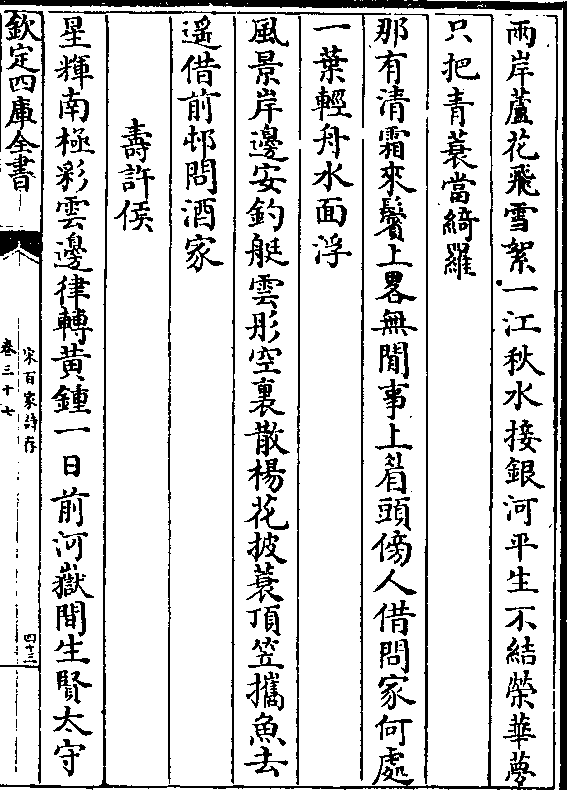 兩岸蘆花飛雪絮一江秋水接銀河平生不結榮華夢
只把青蓑當綺羅
那有清霜來鬢上畧無閒事上眉頭傍人借問家何處
一葉輕舟水面浮
風景岸邊安釣艇雲彤空裏散楊花披蓑頂笠攜魚去
遥借前邨問酒家
壽許侯
星輝南極彩雲邊律轉黃鍾一日前河嶽間生賢太守
欽定四庫全書
宋百家詩存
卷三十七
四十三